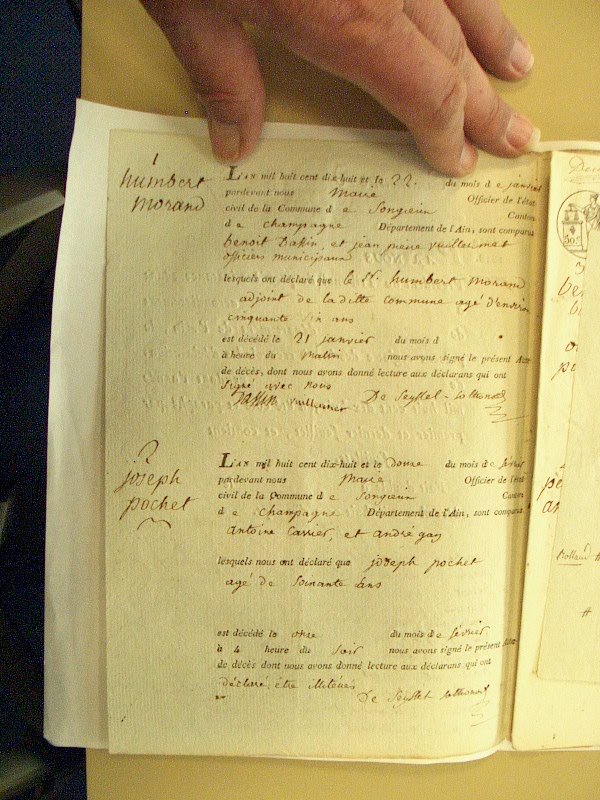 1
humbert
morand
L'AN mil huit cent dix-huit et le 22. du mois d e janvier
pardevant nous Maire Officier de l'état
civil de la Commune d e Songieu Canton
d e champagne Département de l'Ain, sont comparus
benoit Dassin, et jean pierre vuillermet
officiers municipaux
lesquels ont déclaré que le Sr. humbert morand
adjoint de laditte commune agé d'environ
cinquante six ans
est décédé le 21 janvier du mois d
à heure du matin nous avons signé le présent Acte
de décès, dont nous avons donné lecture aux déclarans qui ont
signé avec nous
Dassin vuillermet De Seyssel-Sothonod
2
joseph
pochet
L'AN mil huit cent dix-huit et le douze du mois d e février
pardevant nous Maire Officier de l'état
civil de la Commune d e Songieu Canton
d e champagne Département de l'Ain, sont comparus
Antoine Carrier, et andré gay
lesquels nous ont déclaré que joseph pochet
agé de Soixante ans
est décédé le onze du mois d e février
à 4 heure du Soir nous avons signé le présent Acte
de décès dont nous avons donné lecture aux déclarans qui ont
déclaré être illitérés
De Seyssel Sothonod
Rolland